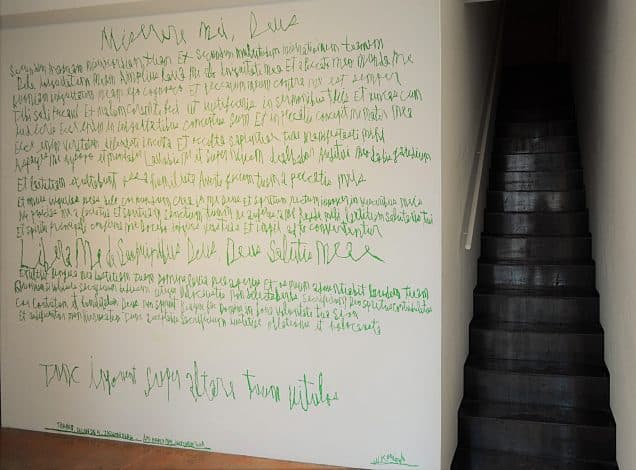 Miserere Mei, Deus
Secundum magnam misericordiam tuam Et Secundum multitudinem miserationum tuarum
Dele iniquitatem meam Amplius lava me ab iniquitate mea Et a peccato meo munda me
Quoniam iniquitatem meam ego cognosco Et peccatum meum contra me est semper
Tibi soli peccavi Et malum coram te feci ut iustificeris in sermonibus tuis Et vincas cum
Ecce enim in iniquitatibus conceptus sum Et in peccatis concepit me mater mea
Ecce enim veritatem dilexisti incerta et occulta sapientiae tuae manifestasti mihi
me et mundabor Lavabis me et super nivem dealbabor Auditui meo dabis gaudium
Et laetitiam exultabunt ossa humiliata faciem tuam a peccatis meis
Et omnes iniquitates meas dele cor mundum crea in me Deus et spiritum rectum innova in visceribus meis
Ne me a facie et spiritum sanctum tuum ne auferas a me Redde mihi laetitiam salutaris tui
Et spiritu principali confirma me docebo iniquos vias tuas Et impii ad te convertentur
Libera Me de Sanguinibus Deus Deus Salutis Meae
lingua mea iustitiam tuam Domine labia mea aperies Et os meum adnuntiabit laudem tuam
sacrificium non delectaberis sacrificium Deo spiritus contribulatus
Cor contritum et humiliatum Deus non spernet Benigne fac Domine in bona voluntate tua Sion
Et aedificentur muri Hierusalem Tunc sacrificium iustitiae oblationes et holocausta
Tunc inponent super altare tuum vitulos